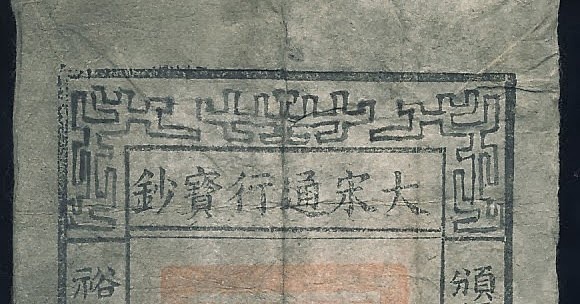 大宋通行寶鈔
頒
裕